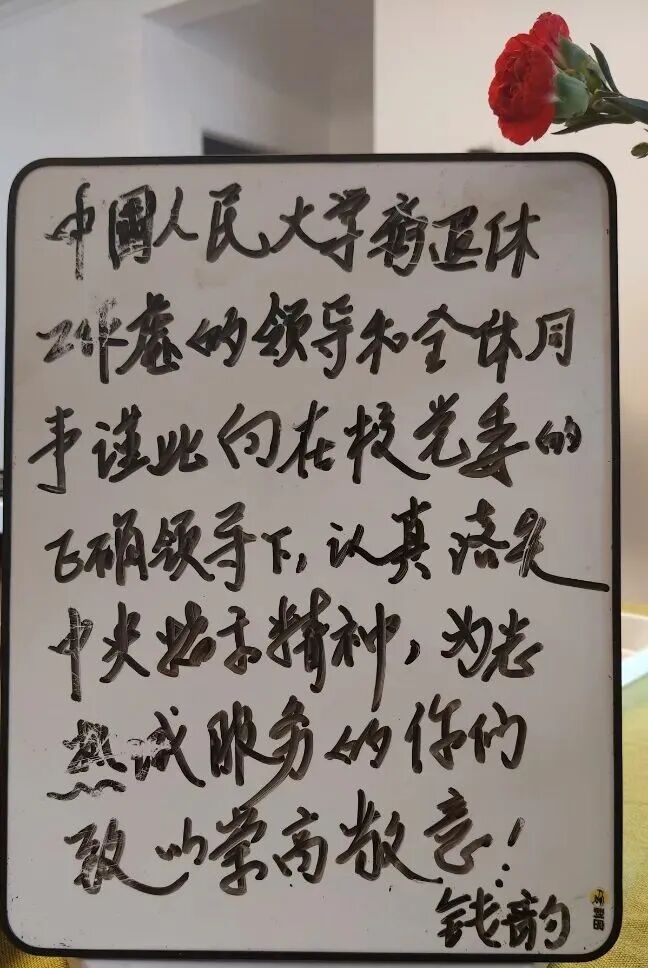 中國人民大学离退休
工作處的领导和全体同
事谨此向在校党委的
正确领导下,认真落实
中央指示精神,为老
热诚服务的你们
致以崇高敬意!
钱韵